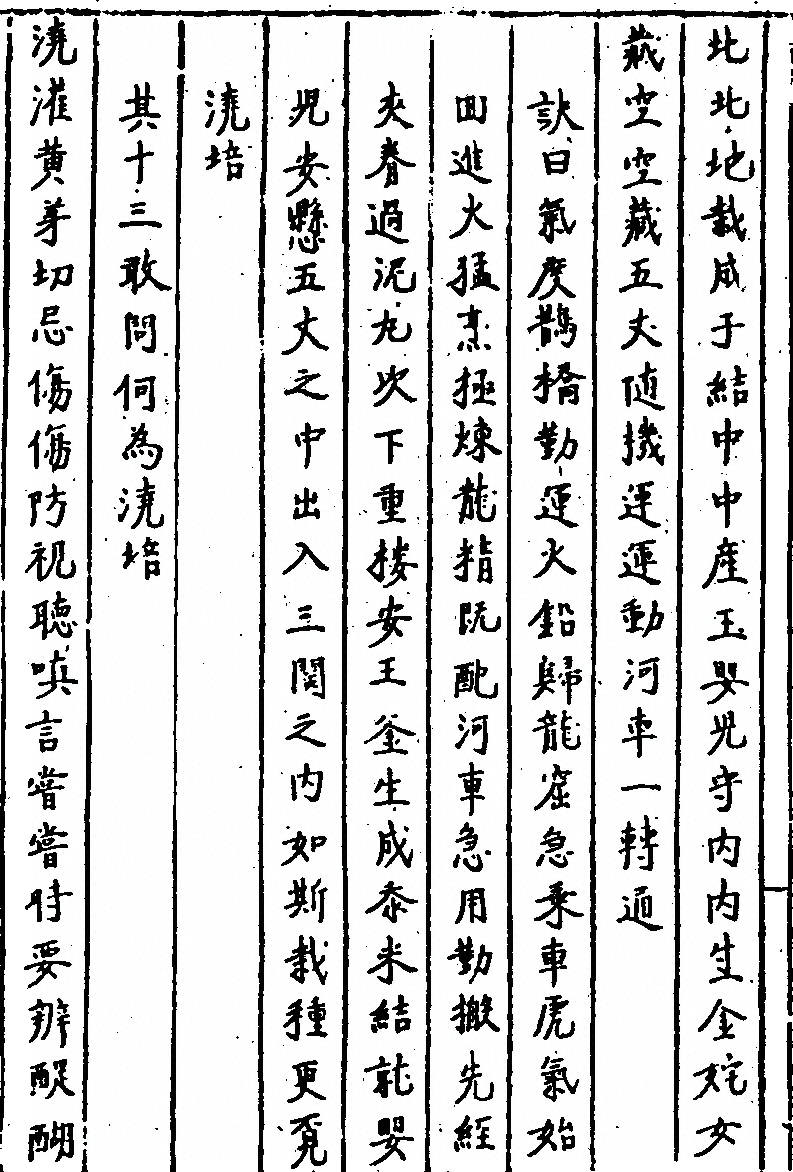 北北地栽成子結中中產玉嬰児守内内生金姹女
藏空空藏五丈随機運運動河車一轉通
訣曰氣度鵲橋勤運火鉛歸龍窟急乘車虎氣始
囬進火猛烹極煉龍精既配河車急用勤搬先經
夾脊過泥丸次下重楼安王釜生成黍米結就嬰
児安懸五丈之中出入三関之内如斯栽種更覔
澆培
其十三敢問何為澆培
澆灌黄芽切忌傷傷防視聽嗔言嘗嘗時要辨醍醐